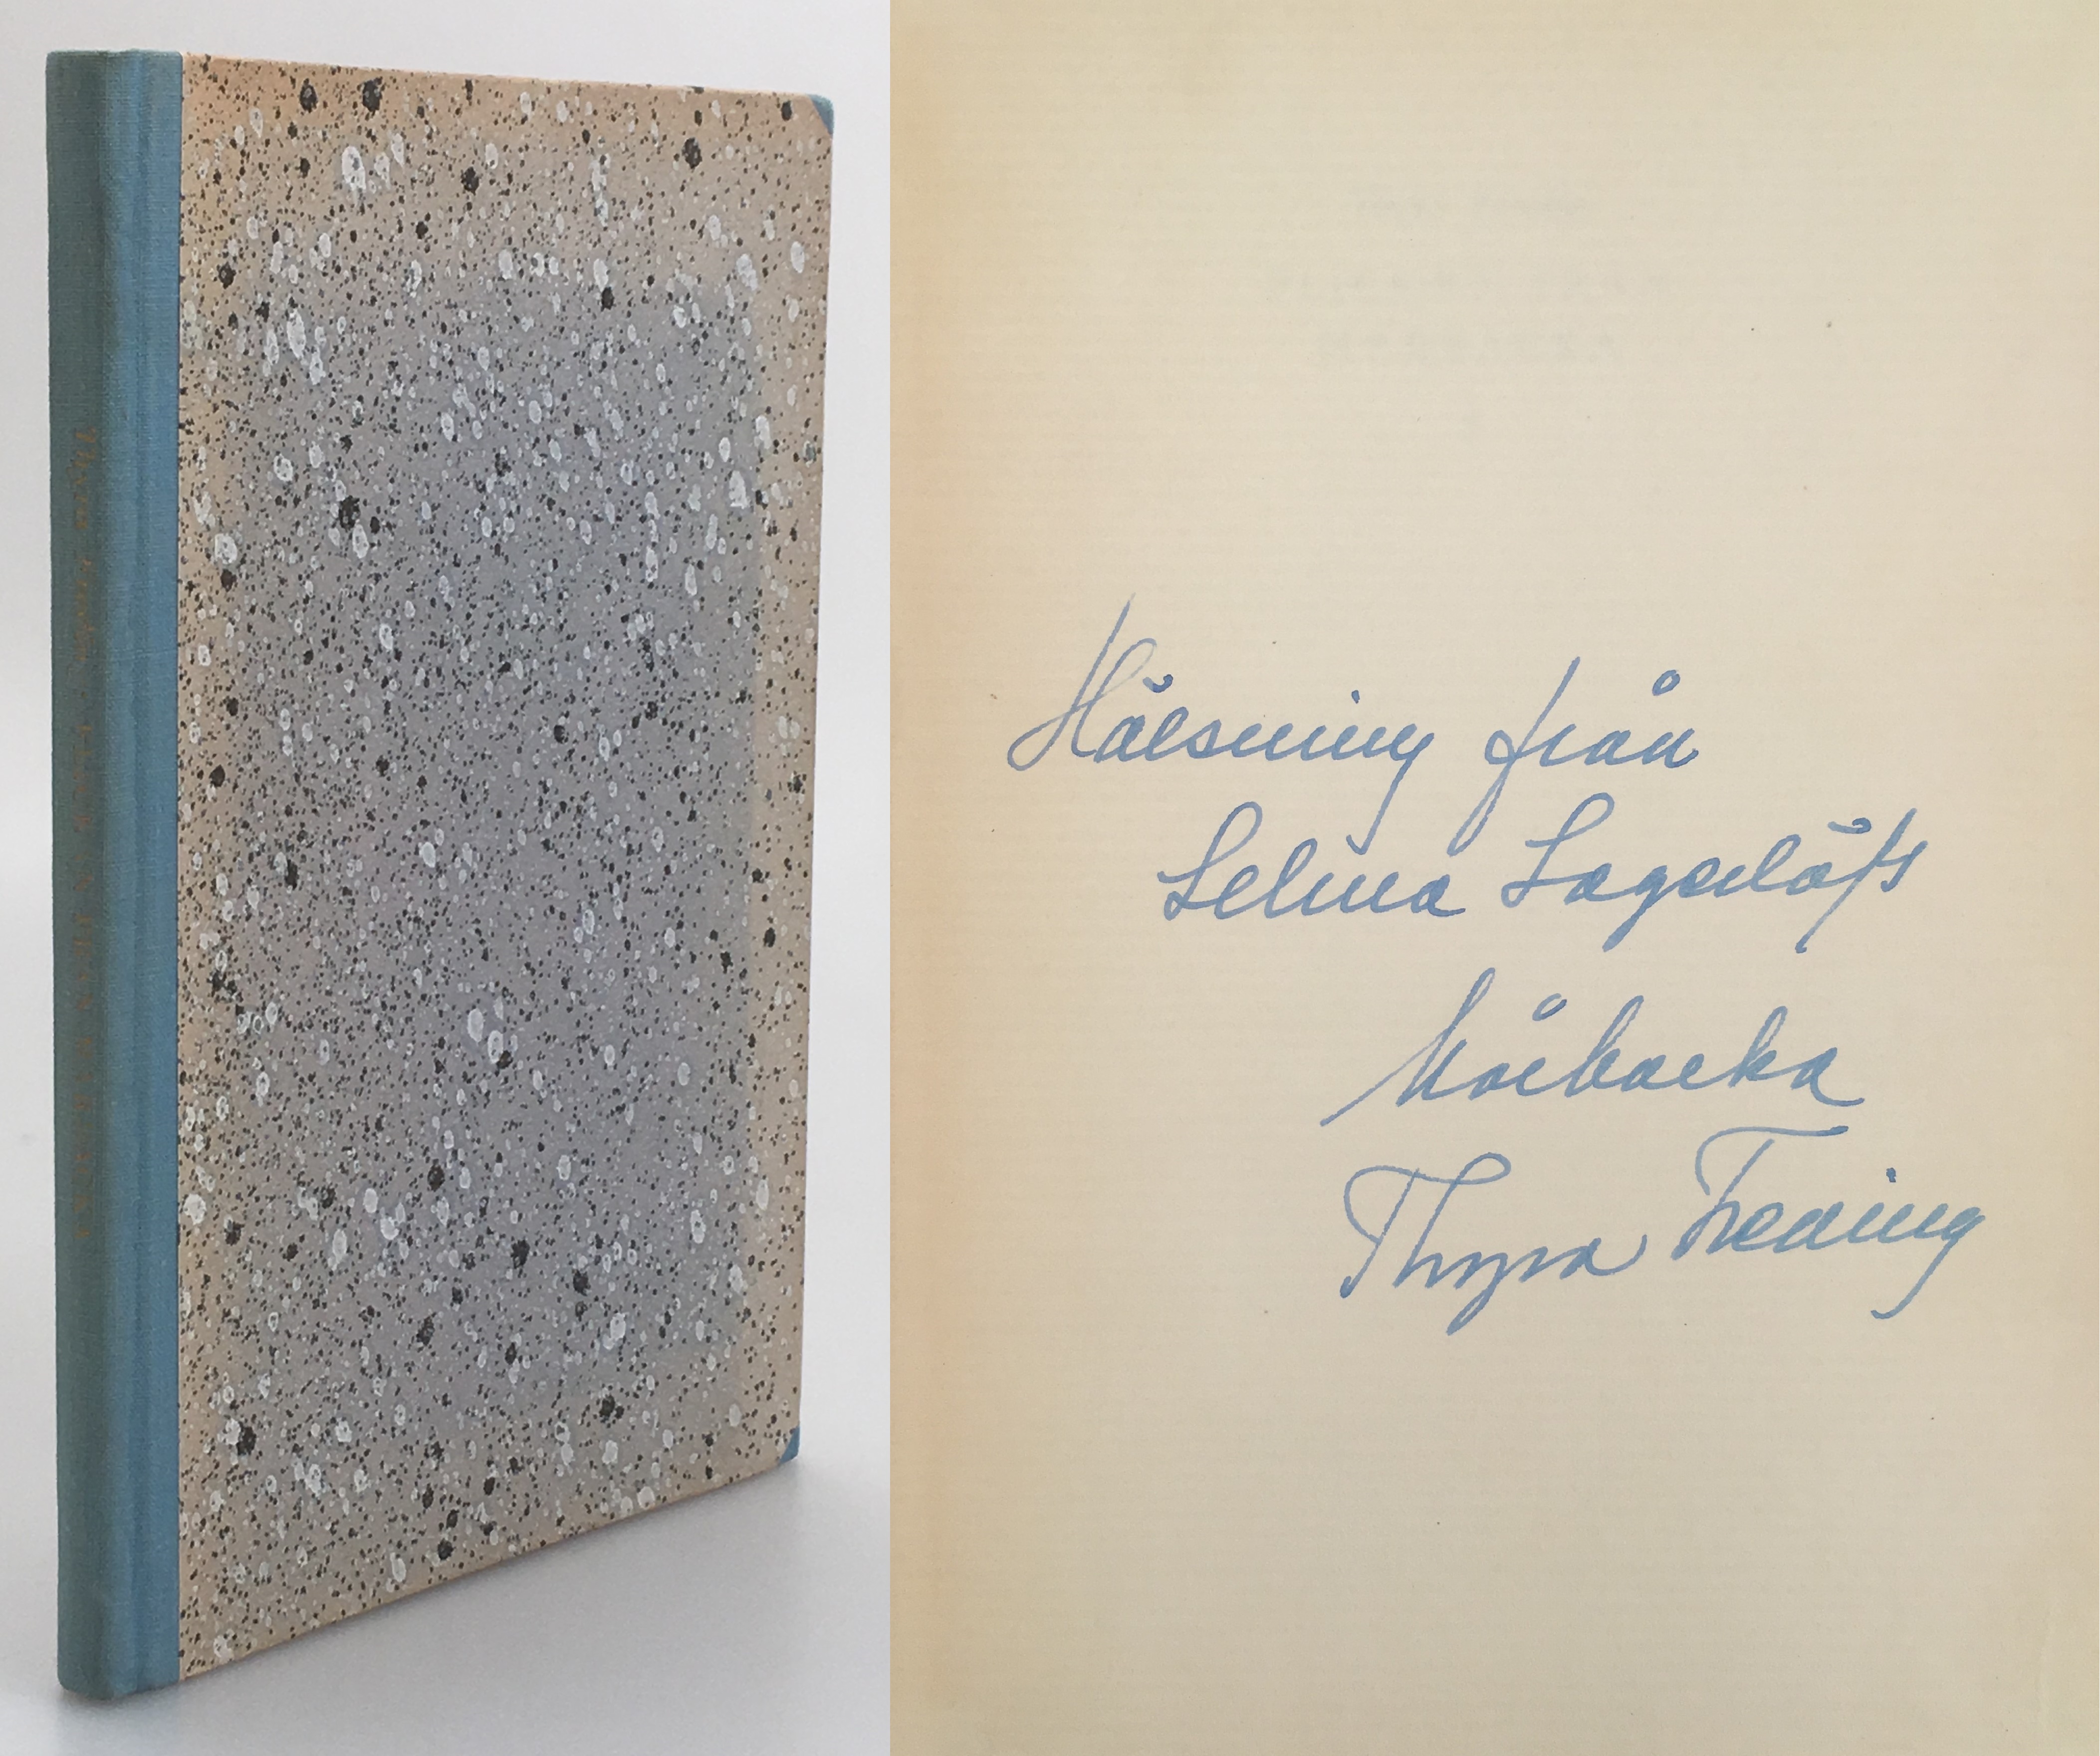 Hälsning från
Selma Lagerlöfs
Mårbacka
Thyra Freding